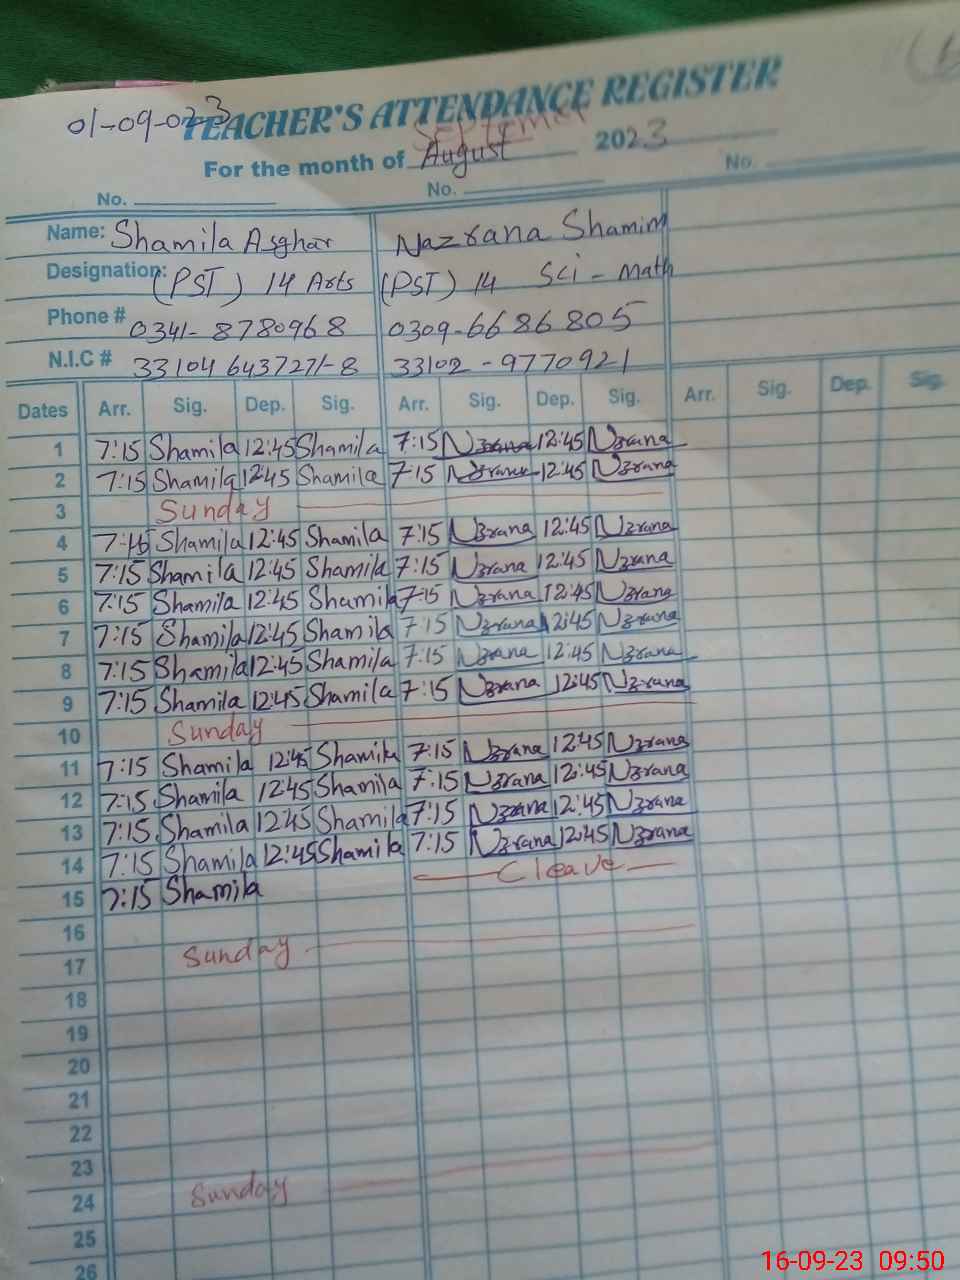 01-09-023
TEACHER'S ATTENDANCE REGISTER
September
For the month of August 2023
No. No. No.
Name: Shamila Asghar Nazrana Shamim
Designation: (PST) 14 Arts (PST) 14 Sci - Math
Phone # 0341-8780968 0309-6686805
N.I.C # 33104 6437271-8 33102-9770921
Dates Arr. Sig. Dep. Sig. Arr. Sig. Dep. Sig. Arr. Sig. Dep. Sig.
1 7:15 Shamila 12:45 Shamila 7:15 Nzrana 12:45 Nzrana
2 7:15 Shamila 12:45 Shamila 7:15 Nzrana 12:45 Nzrana
3 Sunday
4 7:16 Shamila 12:45 Shamila 7:15 Nzrana 12:45 Nzrana
5 7:15 Shamila 12:45 Shamila 7:15 Nzrana 12:45 Nzrana
6 7:15 Shamila 12:45 Shamila 7:15 Nzrana 12:45 Nzrana
7 7:15 Shamila 12:45 Shamila 7:15 Nzrana 12:45 Nzrana
8 7:15 Shamila 12:45 Shamila 7:15 Nzrana 12:45 Nzrana
9 7:15 Shamila 12:45 Shamila 7:15 Nzrana 12:45 Nzrana
10 Sunday
11 7:15 Shamila 12:45 Shamila 7:15 Nzrana 12:45 Nzrana
12 7:15 Shamila 12:45 Shamila 7:15 Nzrana 12:45 Nzrana
13 7:15 Shamila 12:45 Shamila 7:15 Nzrana 12:45 Nzrana
14 7:15 Shamila 12:45 Shamila 7:15 Nzrana 12:45 Nzrana
15 7:15 Shamila Cleave
16
17 Sunday
18
19
20
21
22
23
24 Sunday
25
26
16-09-23 09:50